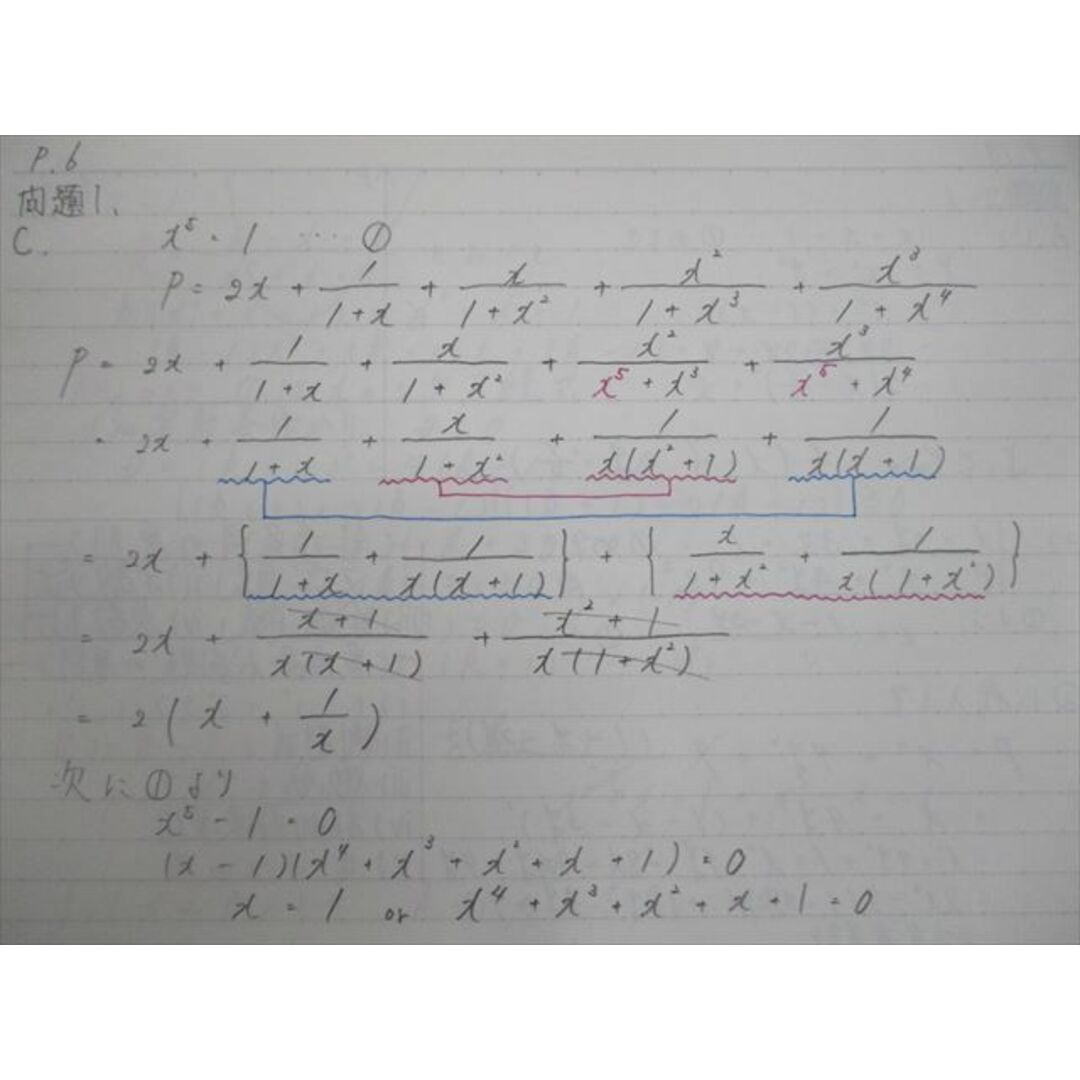 P.6
問題1.
C. x⁵ = 1 … ①
P = 2x + 1/(1+x) + x/(1+x²) + x²/(1+x³) + x³/(1+x⁴)
P = 2x + 1/(1+x) + x/(1+x²) + x²/(x⁵+x³) + x³/(x⁵+x⁴)
= 2x + 1/(1+x) + x/(1+x²) + 1/(x(x²+1)) + 1/(x(x+1))
= 2x + {1/(1+x) + 1/(x(x+1))} + {x/(1+x²) + 1/(x(1+x²))}
= 2x + (x+1)/(x(x+1)) + (x²+1)/(x(1+x²))
= 2(x + 1/x)
次に①より
x⁵ - 1 = 0
(x - 1)(x⁴ + x³ + x² + x + 1) = 0
x = 1 or x⁴ + x³ + x² + x + 1 = 0